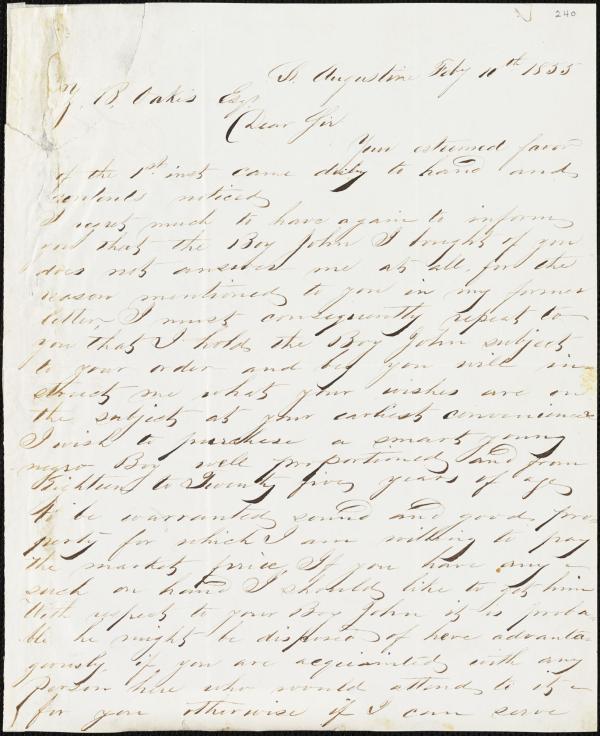 240
St. Augustine Feby 10th 1855
Z. B. Oakes Esqr
Dear Sir
Your esteemed favor
of the 1st inst came duly to hand and
contents noticed
I regret much to have again to inform
you that the Boy John I bought of you
does not answer me at all, for the
reason mentioned to you in my former
letter, I must consequently repeat to
you that I hold the Boy John subject
to your order and beg you will in
struct me what your wishes are on
the subject at your earliest convenience
I wish to purchase a smart young
negro Boy well proportioned and from
Eighteen to Twenty five years of age
to be warranted sound and good pro-
perty for which I am willing to pay
the market price, If you have any
such on hand I should like to get him
With respect to your Boy John it is proba-
ble he might be disposed of here advanta-
giously if you are acquainted with any
person here who would attend to it
for you otherwise if I can serve